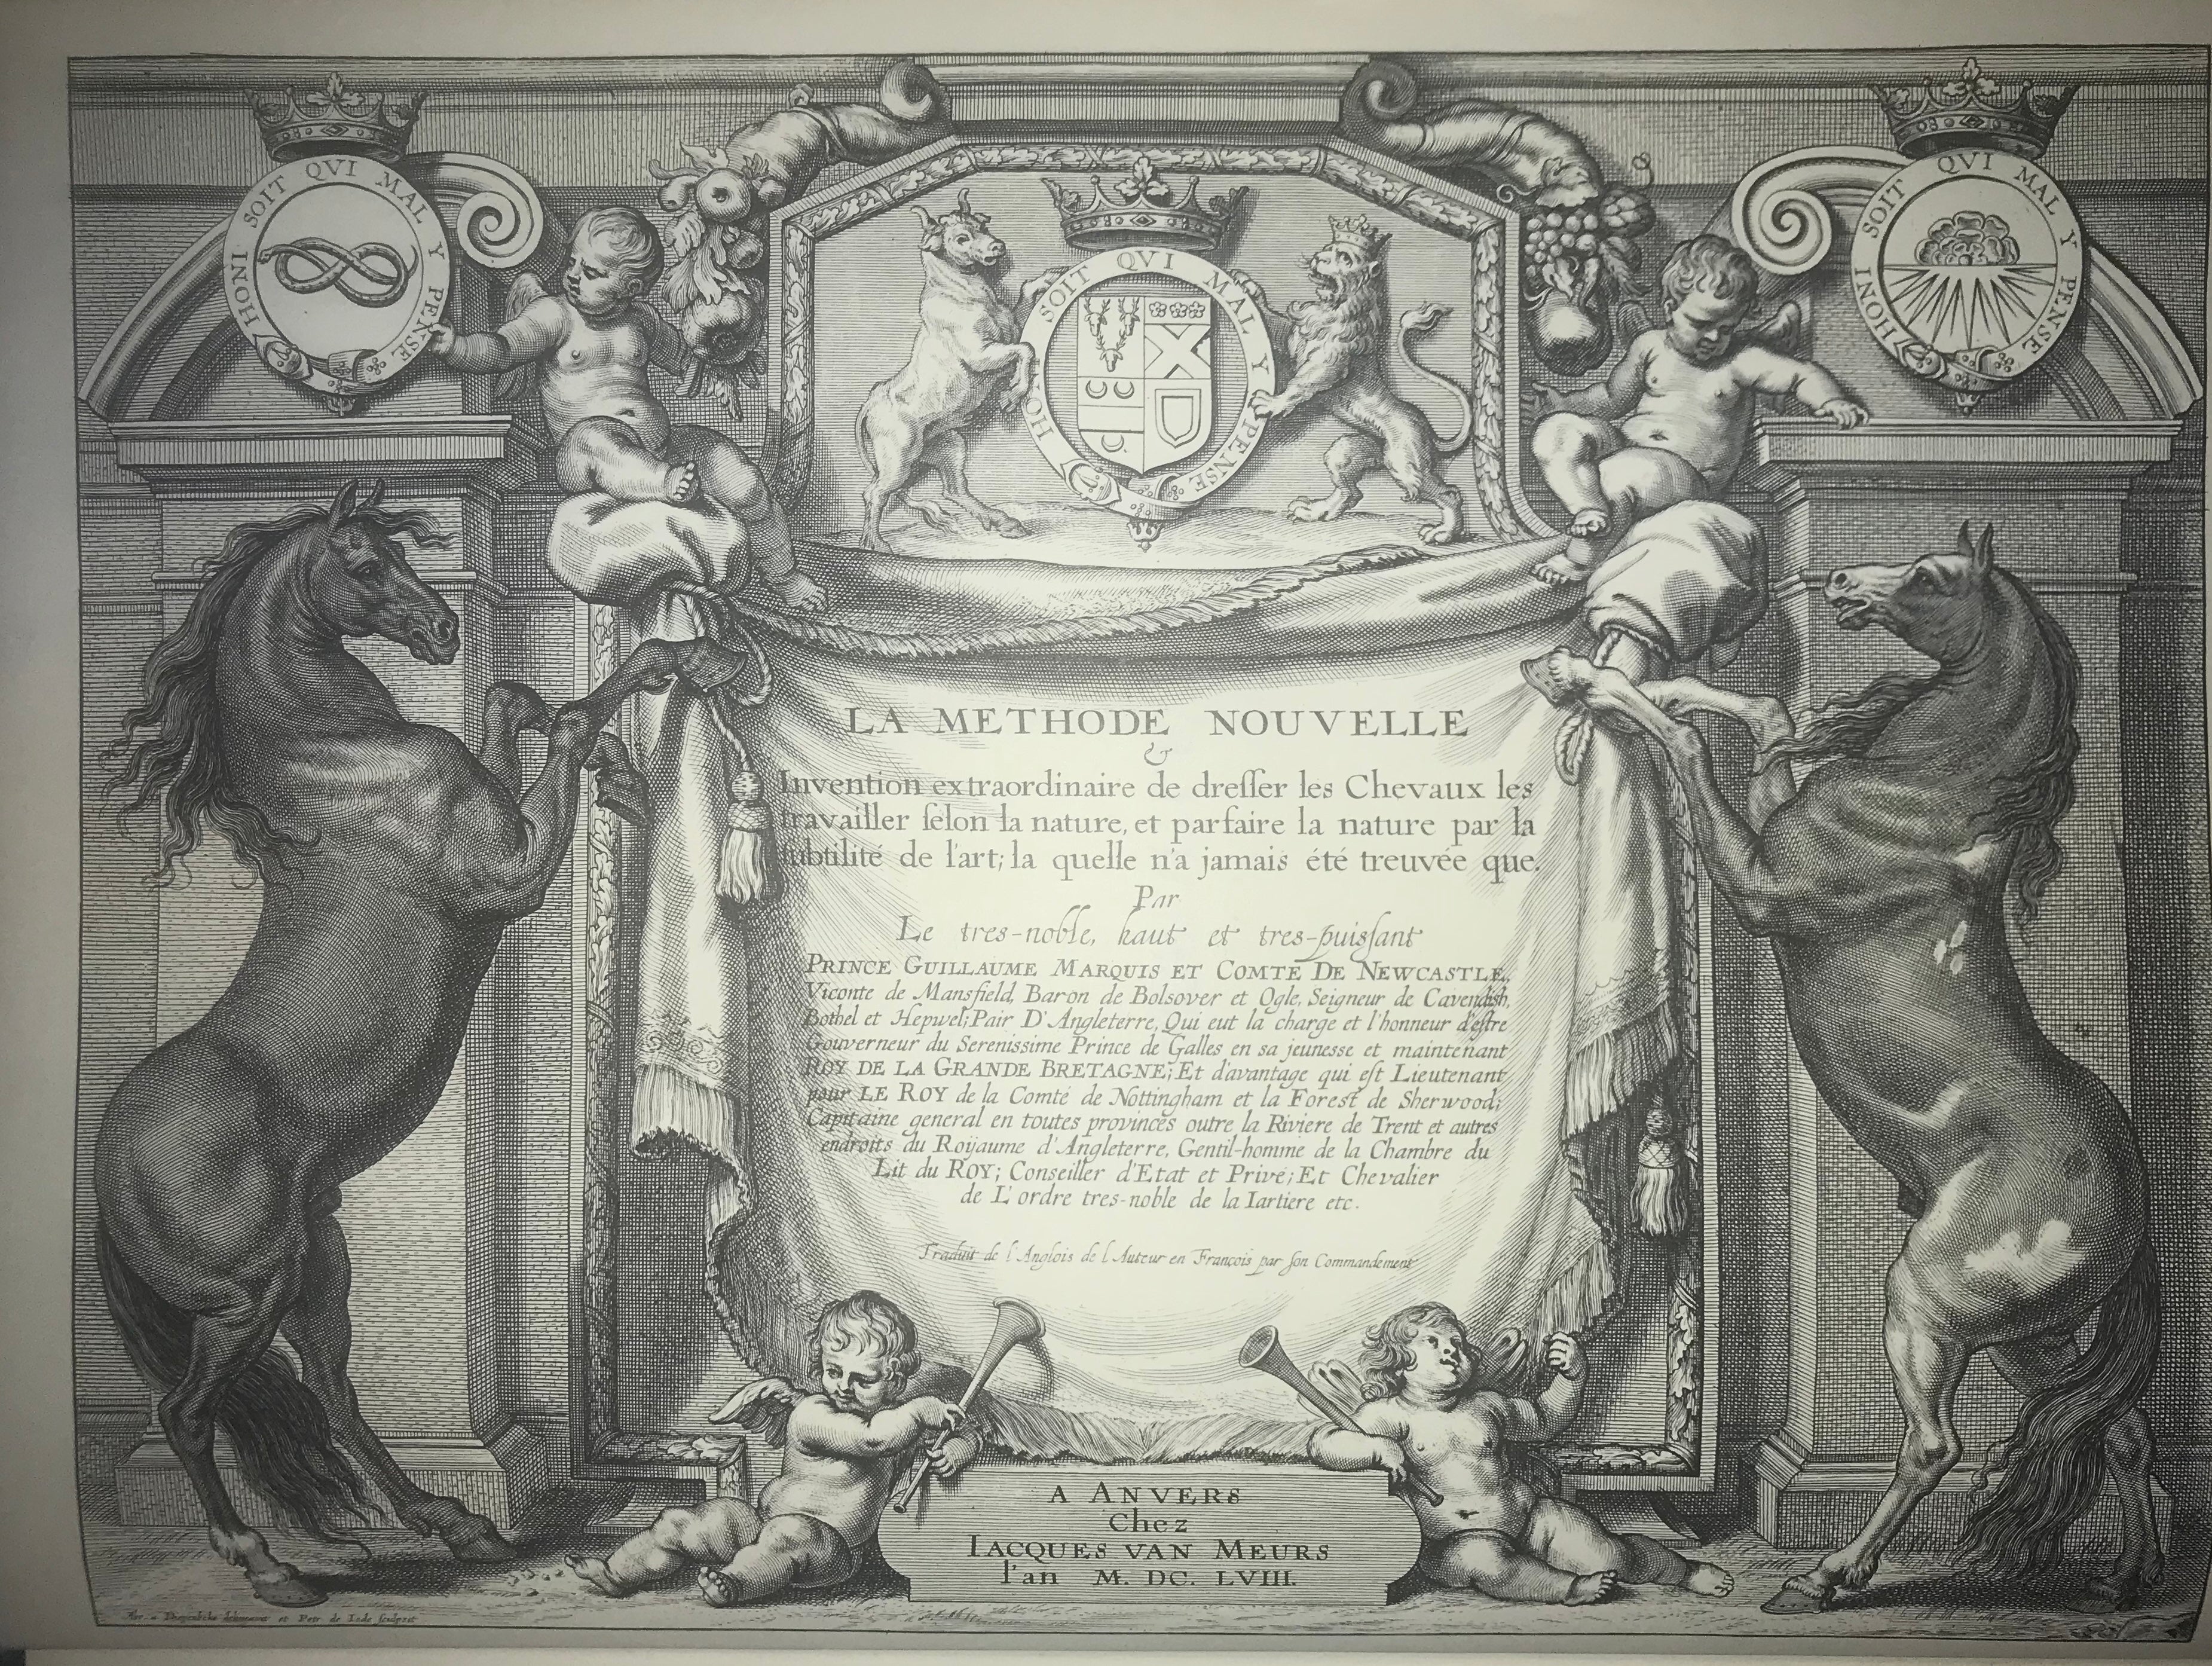 HONI SOIT QVI MAL Y PENSE
HONI SOIT QVI MAL Y PENSE
HONI SOIT QVI MAL Y PENSE
LA METHODE NOUVELLE
&
Invention extraordinaire de dreſſer les Chevaux les
travailler ſelon la nature, et parfaire la nature par la
ſubtilité de l'art; la quelle n'a jamais été treuvée que.
Par
Le tres-noble, haut et tres-puiſſant
PRINCE GUILLAUME MARQUIS ET COMTE DE NEWCASTLE,
Viconte de Mansfield, Baron de Bolsover et Ogle, Seigneur de Cavendish,
Bothel et Hepwel; Pair D'Angleterre, Qui eut la charge et l'honneur d'eſtre
Gouverneur du Serenissime Prince de Galles en sa jeunesse et maintenant
ROY DE LA GRANDE BRETAGNE; Et d'avantage qui eſt Lieutenant
pour LE ROY de la Comté de Nottingham et la Forest de Sherwood;
Capitaine general en toutes provinces outre la Riviere de Trent et autres
endroits du Roÿaume d'Angleterre, Gentil-homme de la Chambre du
Lit du ROY; Conseiller d'Etat et Privé; Et Chevalier
de L'ordre tres-noble de la Iartiere etc.
Traduit de l'Anglois de l'Auteur en François par ſon Commandement
A ANVERS
Chez
IACQUES VAN MEURS
l'an M. DC. LVIII.
et Petr de Iode ſculpsit